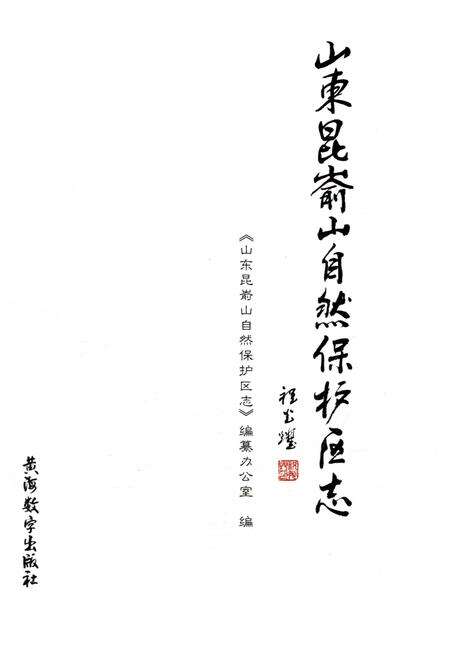 山東昆嵛山自然保护区志
《山东昆嵛山自然保护区志》编纂办公室 编
黄海数字出版社